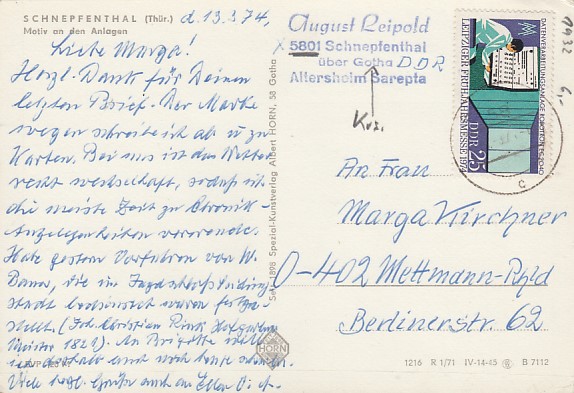 SCHNEPFENTHAL (Thür.)
Motiv an den Anlagen
d. 13.3.74,
Liebe Marga!
Herzl. Dank für Deinen
letzten Brief. Der Marke
wegen schreibe ich ab u zu
Karten. Bei uns ist das Wetter
recht wechselhaft, sodaß ich
die meiste Zeit zu Chronik-
Angelegenheiten verwende.
Habe gestern Vorfahren von W.
die im Jagdschloß
waren
(Joh. Christian Rink Hofgarten
Meister 1821). An Brigitte will
ich deshalb auch noch heute schreiben.
Viele herzl. Grüße auch an Ellen
August Leipold
x 5801 Schnepfenthal
über Gotha DDR
Altersheim Sarepta
Krs.
An Frau
Marga Kirchner
D-402 Mettmann-Rhld
Berlinerstr. 62
Spezial-Kunstverlag Albert HORN, 58 Gotha
HORN
1216 R 1/71 IV-14-45 B 7112
LEIPZIGER FRÜHJAHRSMESSE 1974
DATENVERARBEITUNGSANLAGE ROBOTRON
DDR 25
MM
C